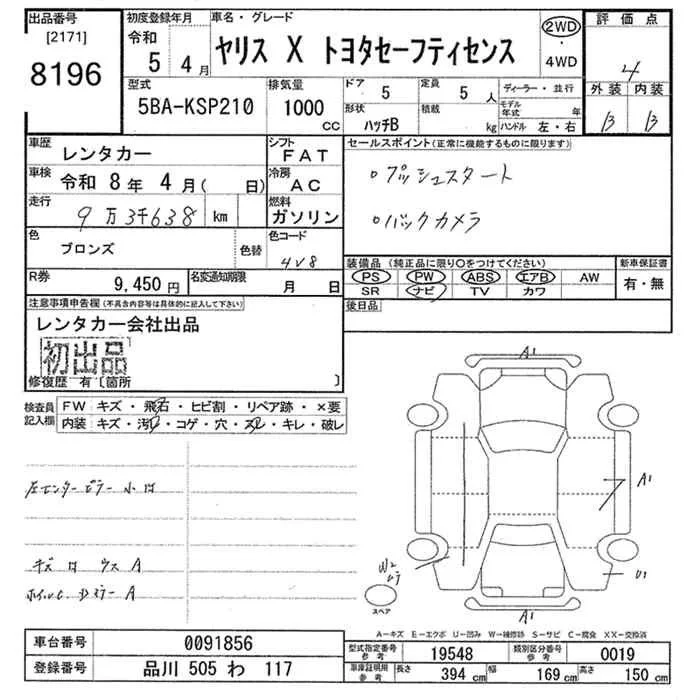 出品番号
[2171]
8196
初度登録年月
令和
5 4月
車名・グレード
ヤリス X トヨタセーフティセンス
2WD
・
4WD
評価点
4
外装 内装
B B
型式
5BA-KSP210
排気量
1000
CC
ドア
5
定員
5 人
形状
ハッチB
積載
kg
ディーラー・並行
モデル年式 年
ハンドル 左・右
車歴
レンタカー
シフト
FAT
車検
令和 8年 4月( 日)
冷房
AC
走行
9万3千638 km
燃料
ガソリン
色
ブロンズ
色替
色コード
4V8
R券
9,450円
名変通知期限
月 日
セールスポイント(正常に機能するものに限ります)
○プッシュスタート
○バックカメラ
装備品(純正品に限り○をつけてください)
PS PW ABS エアB AW
SR ナビ TV カワ
新車保証書
有・無
後日品
注意事項申告欄(不具合内容等は具体的に記入して下さい)
レンタカー会社出品
初出品
修復歴 有〔箇所 〕
検査員
記入欄
FW キズ・飛石・ヒビ割・リペア跡・×要
内装 キズ・汚・コゲ・穴・スレ・キレ・破レ
左センターピラー小凹
キズ凹 ウスA
A1
A1
U1
A1
W2
スペア
A−キズ E−エクボ U−凹み W−補修跡 S−サビ C−腐食 XX−交換済
車台番号
0091856
登録番号
品川 505 わ 117
型式指定番号
参考
19548
類別区分番号
参考
0019
車庫証明用
参考
長さ
394 cm
幅
169 cm
高さ
150 cm